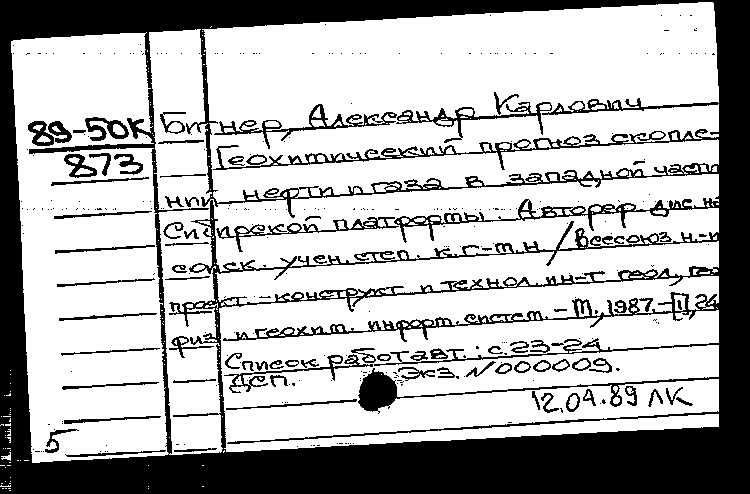 89-50К
873
Битнер, Александр Карлович
Геохимический прогноз скопле-
ний нефти и газа в западной части
Сибирской платформы : Автореф. дис. на
соиск. учен. степ. к.г.-м.н. / Всесоюз. н.-и.
проект.-конструкт. и технол. ин-т геол., гео
физ. и геохим. информ. систем. - М., 1987. - [1], 24
Список работ авт.: с.23-24.
ДСП. Экз. N000009.
12.04.89 ЛК
5